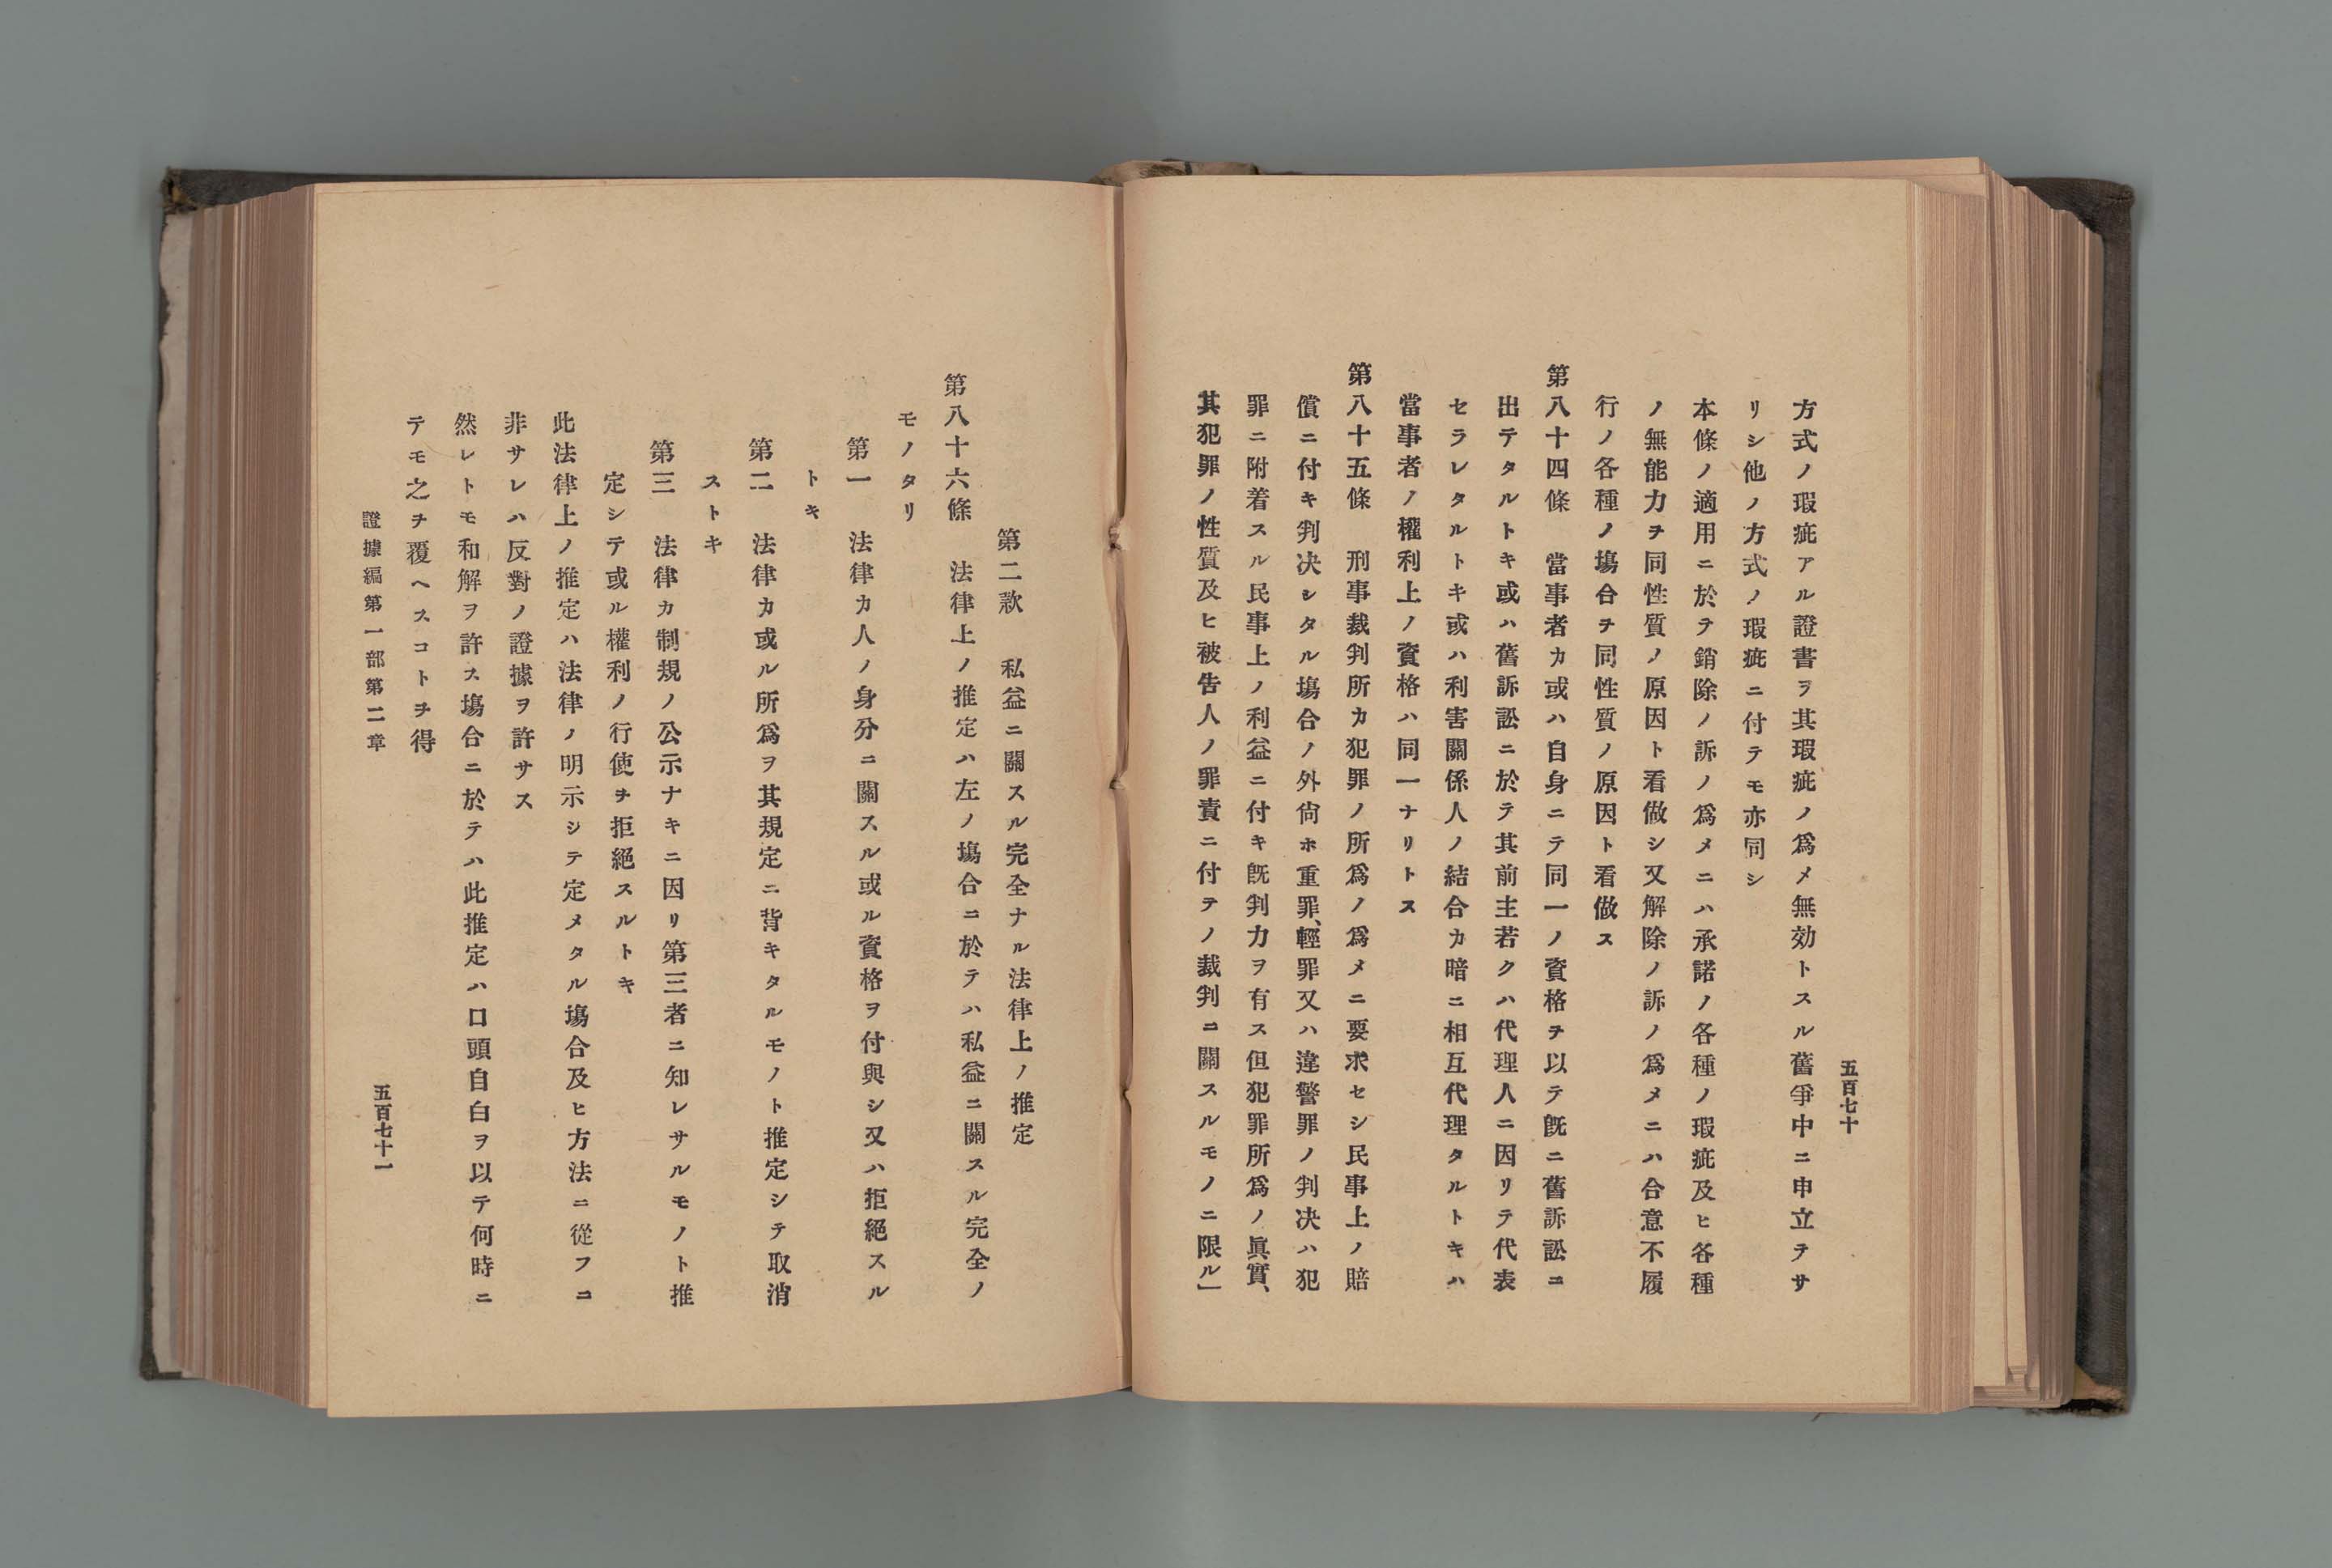 五百七十
方式ノ瑕疵アル證書ヲ其瑕疵ノ爲メ無効トスル舊爭中ニ申立テサ
リシ他ノ方式ノ瑕疵ニ付テモ亦同シ
本條ノ適用ニ於テ銷除ノ訴ノ爲メニハ承諾ノ各種ノ瑕疵及ヒ各種
ノ無能力ヲ同性質ノ原因ト看做シ又解除ノ訴ノ爲メニハ合意不履
行ノ各種ノ塲合ヲ同性質ノ原因ト看做ス
第八十四條　當事者カ或ハ自身ニテ同一ノ資格ヲ以テ既ニ舊訴訟ニ
出テタルトキ或ハ舊訴訟ニ於テ其前主若クハ代理人ニ因リテ代表
セラレタルトキ或ハ利害關係人ノ結合カ暗ニ相互代理タルトキハ
當事者ノ權利上ノ資格ハ同一ナリトス
第八十五條　刑事裁判所カ犯罪ノ所爲ノ爲メニ要求セシ民事上ノ賠
償ニ付キ判决シタル塲合ノ外尙ホ重罪、輕罪又ハ違警罪ノ判决ハ犯
罪ニ附着スル民事上ノ利益ニ付キ既判力ヲ有ス但犯罪所爲ノ眞實、
其犯罪ノ性質及ヒ被告人ノ罪責ニ付テノ裁判ニ關スルモノニ限ル」
第二欵　私益ニ關スル完全ナル法律上ノ推定
第八十六條　法律上ノ推定ハ左ノ塲合ニ於テハ私益ニ關スル完全ノ
モノタリ
第一　法律カ人ノ身分ニ關スル或ル資格ヲ付與シ又ハ拒絕スル
トキ
第二　法律カ或ル所爲ヲ其規定ニ背キタルモノト推定シテ取消
ストキ
第三　法律カ制規ノ公示ナキニ因リ第三者ニ知レサルモノト推
定シテ或ル權利ノ行使ヲ拒絕スルトキ
此法律上ノ推定ハ法律ノ明示シテ定メタル塲合及ヒ方法ニ從フコ
非サレハ反對ノ證據ヲ許サス
然レトモ和解ヲ許ス塲合ニ於テハ此推定ハ口頭自白ヲ以テ何時ニ
テモ之ヲ覆ヘスコトヲ得
證據編第一部第二章
五百七十一